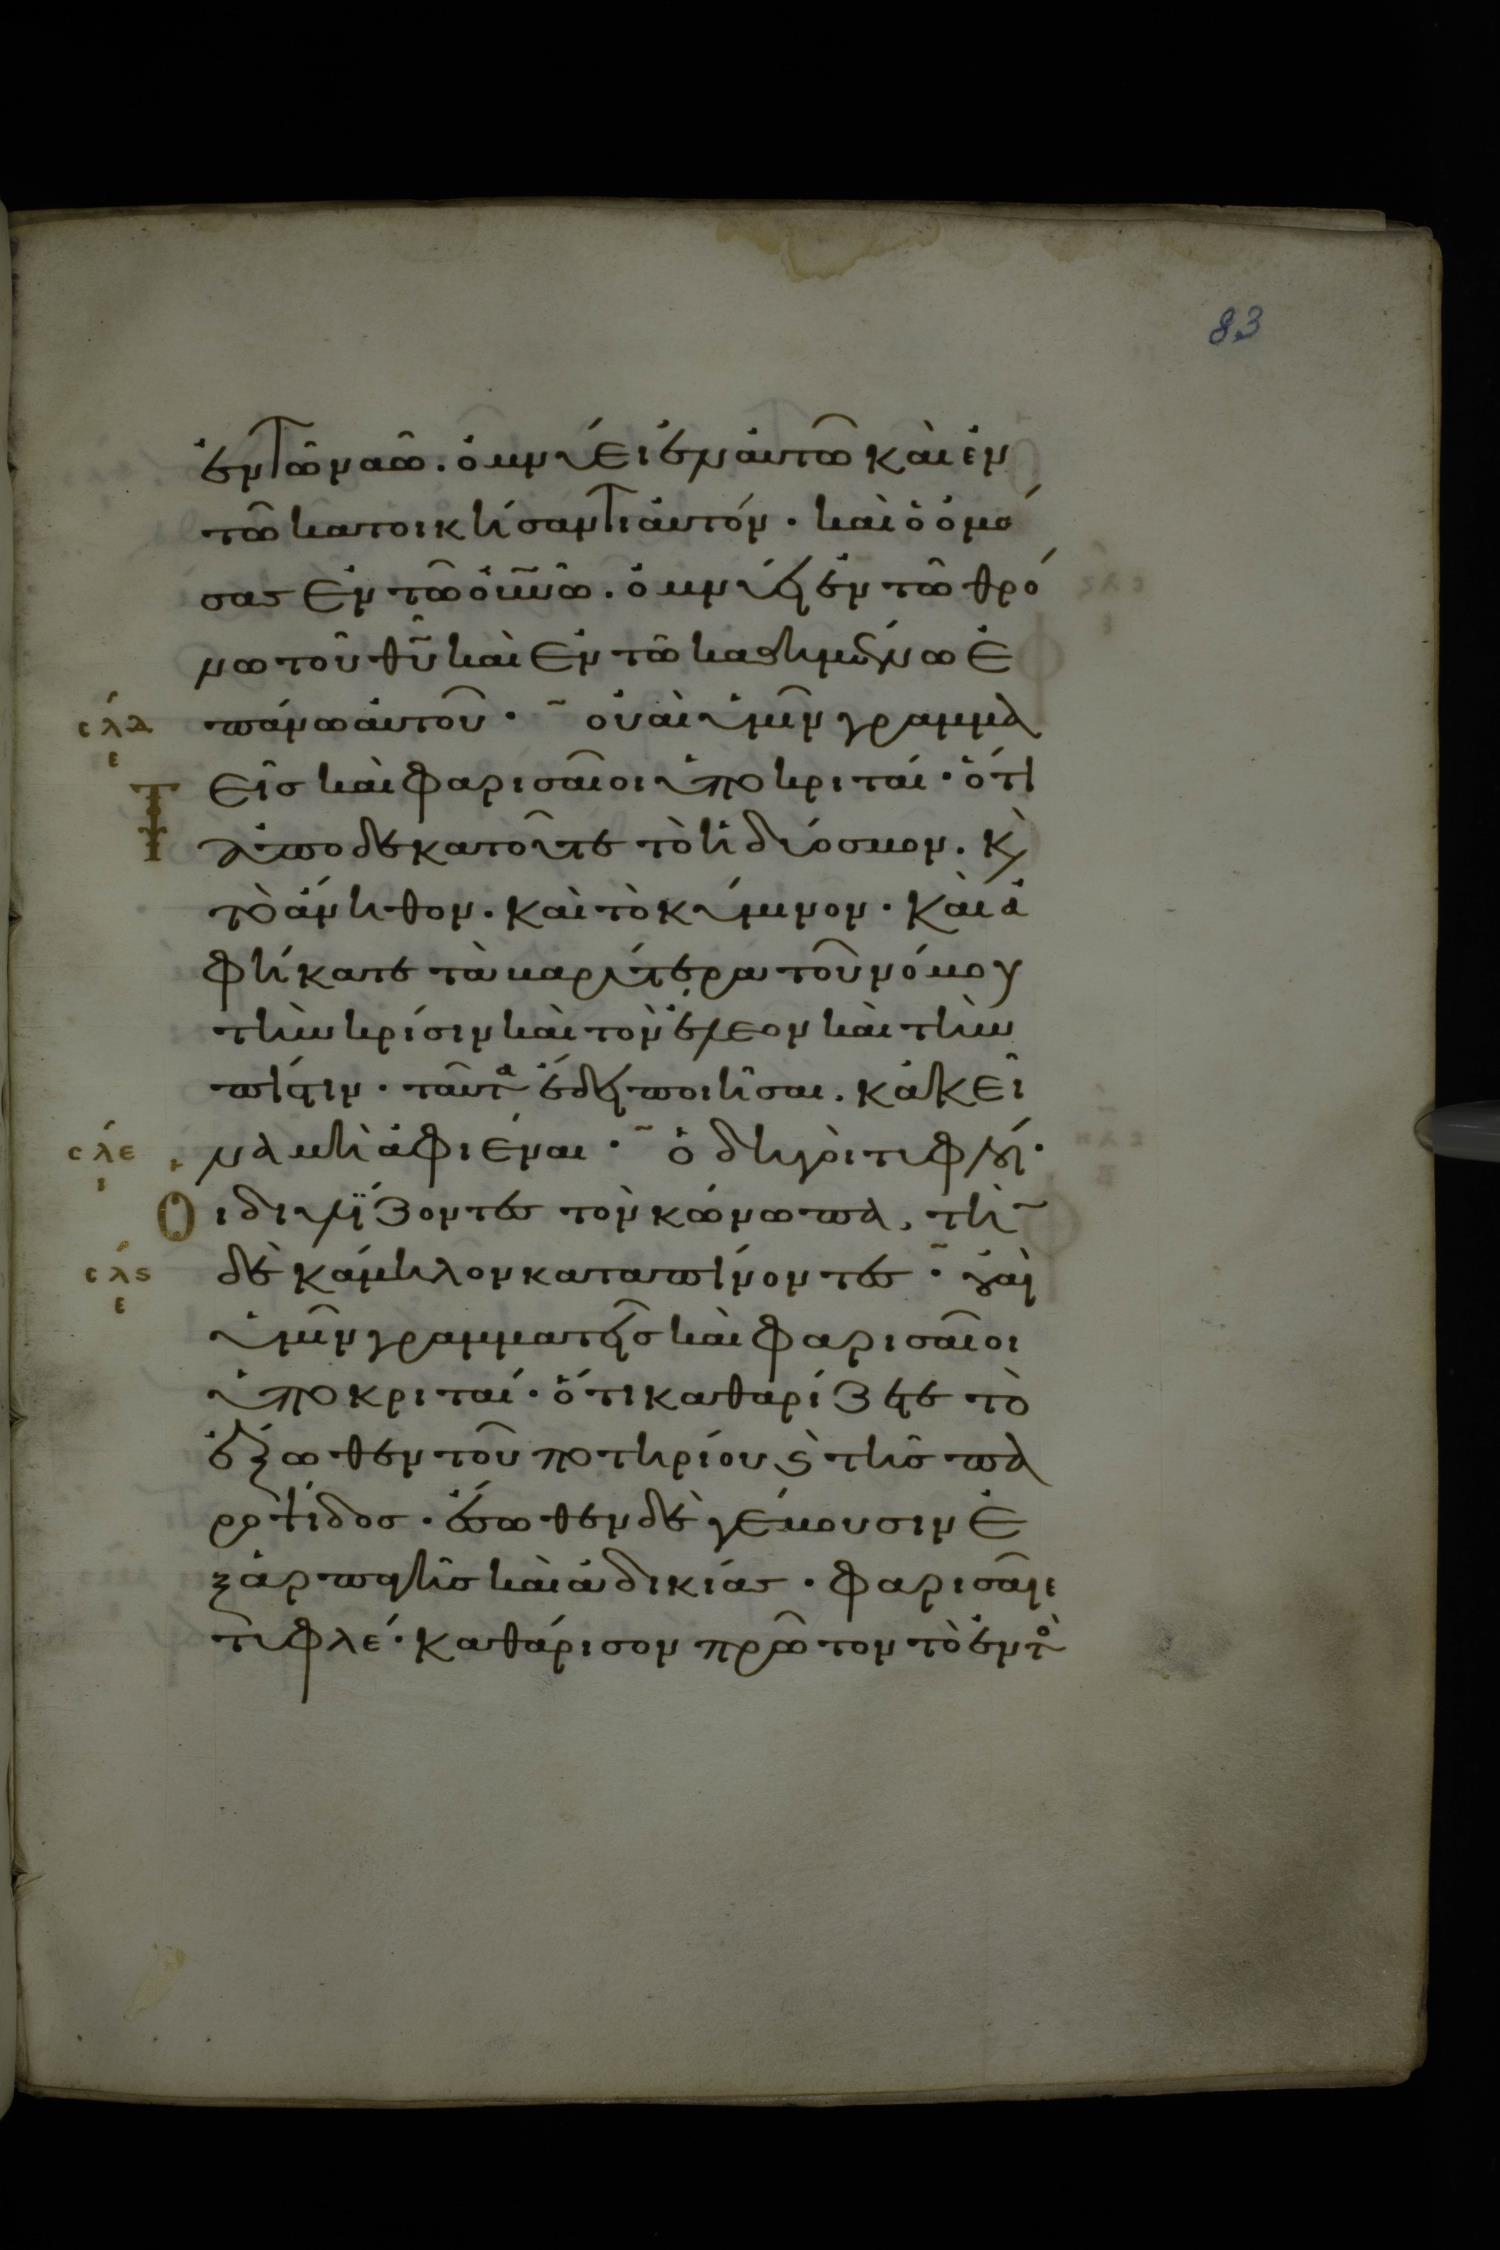 83
ἐν τῶ ναῶ. ὀμνύει ἐν αὐτῶ καὶ ἐν
τῶ κατοικήσαντι αὐτόν· καὶ ὁ ὀμό
σας ἐν τῶ οὐνῶ. ὀμνύει ἐν τῶ θρό
νω τοῦ θῦ καὶ ἐν τῶ καθημένω ἐ
σλδ ε
πάνω αὐτοῦ· οὐαὶ ὑμῖν γραμμα
Τεῖς καὶ φαρισαῖοι ὑποκριταί· ὅτι
ἀποδεκατοῦτε τὸ ἡδύοσμον. κ
τὸ ἄνηθον. καὶ τὸ κύμινον· καὶ ἀ
φήκατε τὰ βαρύτερα τοῦ νόμου
τὴν κρίσιν καὶ τὸν ἔλεον καὶ τὴν
πίστιν· ταῦτα ἔδει ποιῆσαι. κἀκεῖ
σλε ι
να μὴ ἀφιέναι· ὁδηγοὶ τυφλοί·
Οἱ διϋλίζοντες τὸν κώνωπα, τὴν
σλς ε
δὲ κάμηλον καταπίνοντες· οὐαὶ
ὑμῖν γραμματεῖς καὶ φαρισαῖοι
ὑποκριταί· ὅτι καθαρίζετε τὸ
ἔξωθεν τοῦ ποτηρίου ϛ τῆς πα
ροψίδος· ἔσωθεν δὲ γέμουσιν ἐ
ξ ἁρπαγῆς καὶ ἀδικίας· φαρισαῖε
τυφλέ· καθάρισον πρῶτον τὸ ἐντὸ